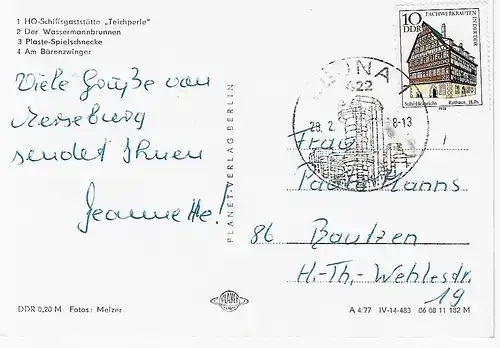 1 HO-Schiffsgaststätte „Teichperle"
2 Der Wassermannbrunnen
3 Plaste-Spielschnecke
4 Am Bärenzwinger
Viele Grüße von
Merseburg
sendet Ihnen
Jeannette!
PLANET-VERLAG BERLIN
10
DDR
FACHWERKBAUTEN
IN DER DDR
Stahl-Heinrichs Rathaus, H.Bs.
LEUNA 1
422
29.2. 8-13
Frau
Paula Manns
86 Bautzen
H.-Th.-Wehlesdr.
19
DDR 0,20 M Fotos: Melzer
PLANET
A 4/77 IV-14-483 06 08 11 182 M